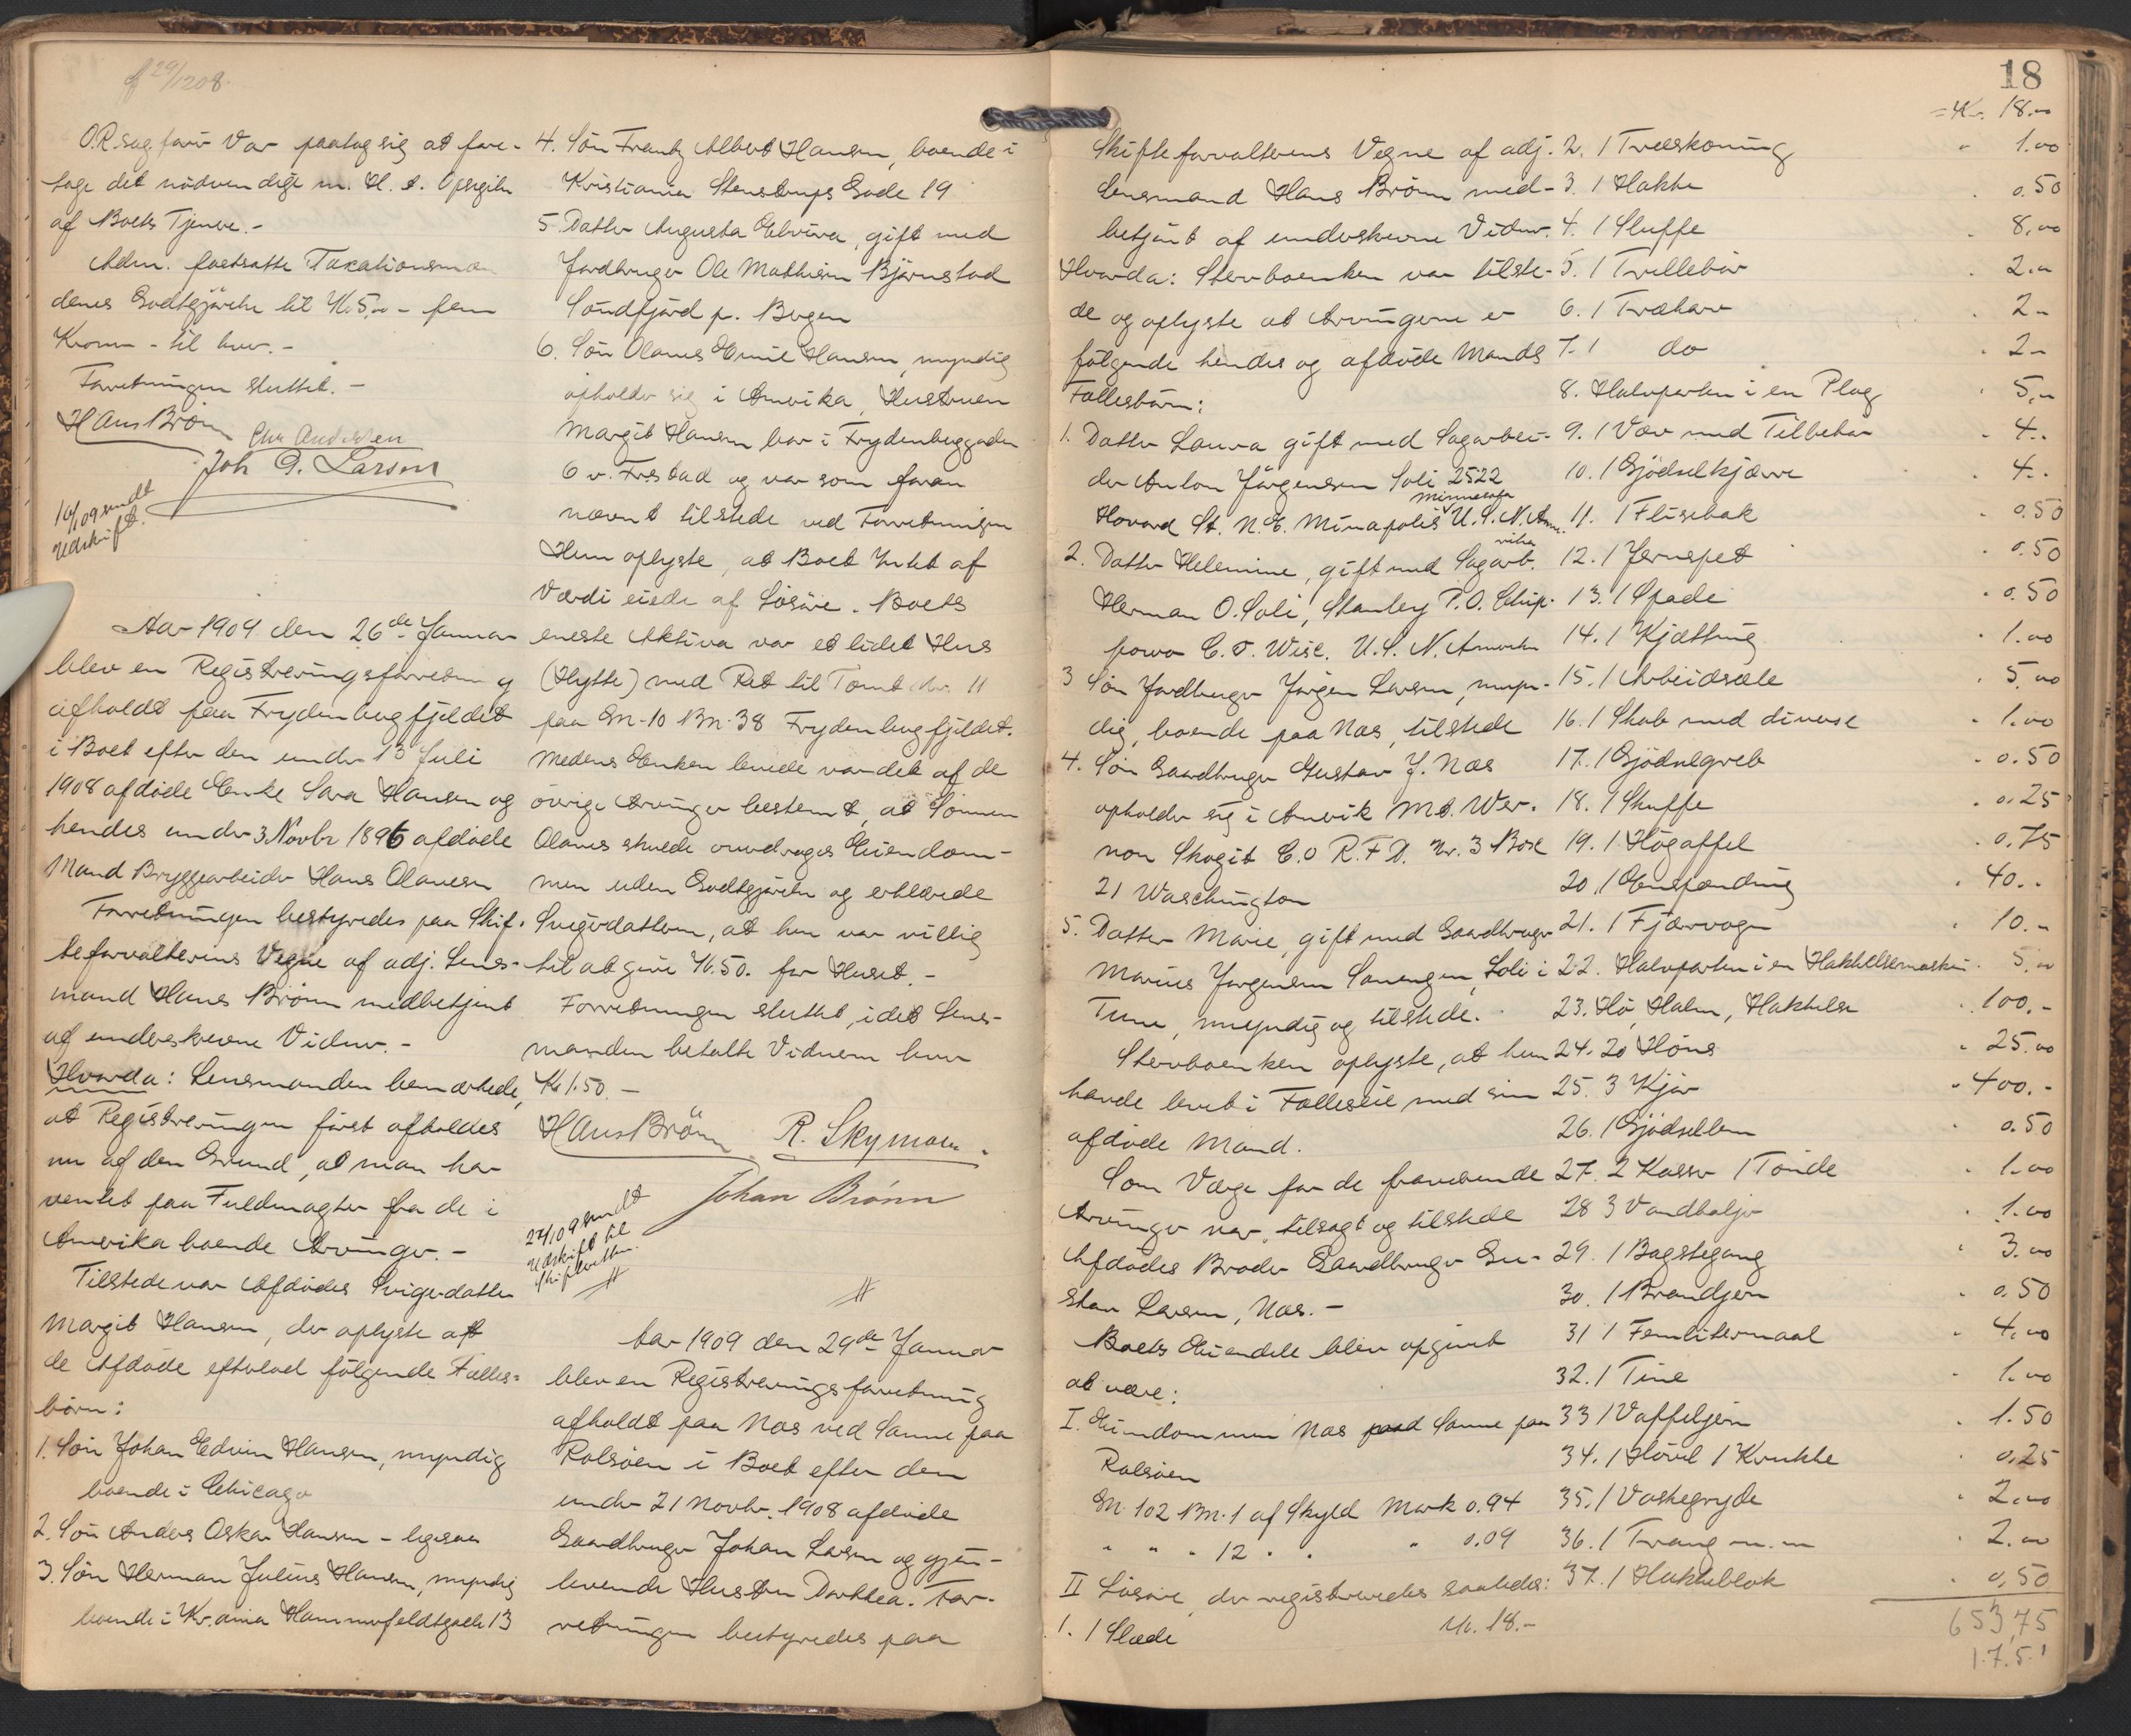 29/1208.
O.R.sagfører Vor paatog sig at fore-
tage det nødvendige m. H. t. Opgivelse
af Boets Tjeneve.-
Adm. fastsatte Taxationsmæn
denes Godtgjørelse til Kr 5,00 - fem
Kroner - til hver.-
Forretningen sluttet.-
Hans Brønn Chr Andersen
Joh G. Larsen
10/109 sendt
Udskrift.
Aar 1909 den 26de Januar
blev en Registreringsforretning
afholdt paa Frydenbergfjeldet
i Boet efter den under 13 Juli
1908 afdøde Enke Sara Hansen og
hendes under 3 Novbr 1896 afdøde
Mand Bryggearbeider Hans Olavesen
Forretningen bestyredes paa Skif-
teforvalterens Vegne af adj. Lens-
mand Hans Brønn medbetjent
af underskrevne Vidner.-
Hvorda: Lensmanden bemærkede,
at Registreringen først afholdes
nu af den Grund, at man har
ventet paa Fuldmagter fra de i
Amerika boende Arvinger.-
Tilstede var Afdødes Svigerdatter
Margit Hansen, der oplyste at
de Afdøde efterlod følgende Fælles-
børn:
1. Søn Johan Edvin Hansen, myndig
boende i Chicago
2. Søn Anders Oskar Hansen - ligesaa
3. Søn Herman Julius Hansen, myndig
boende i Kr.ania Hammerfeldtgade 13
4. Søn Frantz Albert Hansen, boende i
Kristiania Stenstrups Gade 19
5 Datter Augusta Elvira, gift med
Jordbruger Ole Mathisen Bjørnstad
Søndfjord p. Bergen
6. Søn Olaves Emil Hansen, myndig
opholder sig i Amerika, Hustruen
Margit Hansen bor i Frydenberggaden
6 v. Fr.stad og var som foran
nævnt tilstede ved Forretningen
Hun oplyste, at Boet Intet af
Værdi eiede af Løsøre. Boets
eneste Aktiva var et lidet Hus
(Hytte) med Ret til Tomt Nr. 11
paa Gn. 10 Bn. 38 Frydenbergfjeldet.
Medens Enken levede var det af de
øvrige Arvinger bestemt, at Sønnen
Olaves skulde overdrages Eiendom-
men uden Godtgjørelse og erklærede
Svigerdatteren, at hun var villig
til at give Kr. 50. for Huset.-
Forretningen sluttet, idet Lens-
manden betalte Vidnerne hver
Kr 1.50.-
Hans Brønn R. Skymoen.
Johan Brønn
27/1 09 sendt
Udskrift til
Skifteretten.
Aar 1909 den 29de Januar
blev en Registreringsforretning
afholdt paa Nas ved Sanne paa
Rolsøen i Boet efter den
under 21 Novbr. 1908 afdøde
Gaardbruger Johan Larsen og gjen-
levende Hustru Dorthea. For-
retningen bestyredes paa
18
= Kr. 18.00
Skifteforvalterens Vegne af adj.
Lensmand Hans Brønn med-
betjent af underskrevne Vidner.
Hvorda: Stervboenken var tilste-
de og oplyste at Arvingerne er
følgende hendes og afdøde Mands
Fællesbørn:
1. Datter Laura gift med Sagarbei-
der Anton Jørgensen Soli 2522
Minnesota
Hovard St. N.E. Minapolis U.S. N. Ame
rika
2. Datter Helemine, gift med Sagarb.
Herman O. Soli, Stanley P.O. Chip-
powa C.T. Wisc. U.S. N. Amerika
3 Søn Jordbruger Jørgen Larsen, myn-
dig, boende paa Nas, tilstede
4. Søn Gaardbruger Gustav J. Nas
opholder sig i Amerik Mt. Wer-
non Skagit C.O R.F.D. Nr. 3 Box
21 Waschington
5. Datter Marie, gift med Gaardbruger
Marius Jørgensen Lønengen, Soli i
Tune, myndig og tilstede.
Stervboenken oplyste, at hun
havde levet i Fælleseie med sin
afdøde Mand.
Som Værge for de fraværende
Arvinger var tilsagt og tilstede
Afdødes Broder Gaardbruger Gu-
stav Larsen, Nas.-
Boets Eiendele blev opgivet
at være:
I. Eiendommen Nas paa Sanne paa
Rolsøen
Gn. 102 Bn. 1 af Skyld Mark 0.94
" " " 12 " " " 0.09
II Løsøre, der registreredes saaledes:
1. 1 Slæde Kr. 18.-
2. 1 Træskoning " 1.00
3. 1 Hakke " 0.50
4. 1 Sluffe " 8,00
5. 1 Trillebør " 2.00
6. 1 Træharv " 2-
7. 1 do " 2-
8. Halvparten i en Plog " 5,-
9. 1 Væv med Tilbehør " 4..
10. 1 Gjødselkjærre " 4..
11. 1 Flisebak " 0.50
12. 1 Jernspet " 0.50
13. 1 Spade " 0.50
14. 1 Kjætting " 1.00
15. 1 Arbeidssæle " 5.00
16. 1 Skab med diverse " 1.00
17. 1 Gjødselgreb " 0.50
18. 1 Skuffe " 0.25
19. 1 Høgaffel " 0.75
20. 1 Enspænding " 40..
21. 1 Fjærvogn " 10.-
22. Halvparten i en Hakkelsemaskin " 5.00
23. Hø, Halm, Hakkelse " 100.-
24. 20 Høns " 25.00
25. 3 Kjør " 400.-
26. 1 Gjødsellem " 0.50
27. 2 Kasser 1 Tønde " 1.00
28 3 Vandbaljer " 1.00
29. 1 Bagstegang " 3.00
30. 1 Brandjern " 0.50
31 1 Femlitermaal " 4.00
32. 1 Tine " 1.00
33 1 Vaffeljern " 1.50
34. 1 Høvel 1 Krukke " 0,25
35. 1 Vaskegryde " 2,00
36. 1 Trang m.m " 2.00
37. 1 Hakkeblok " 0,50
653,75
1.7.5.1